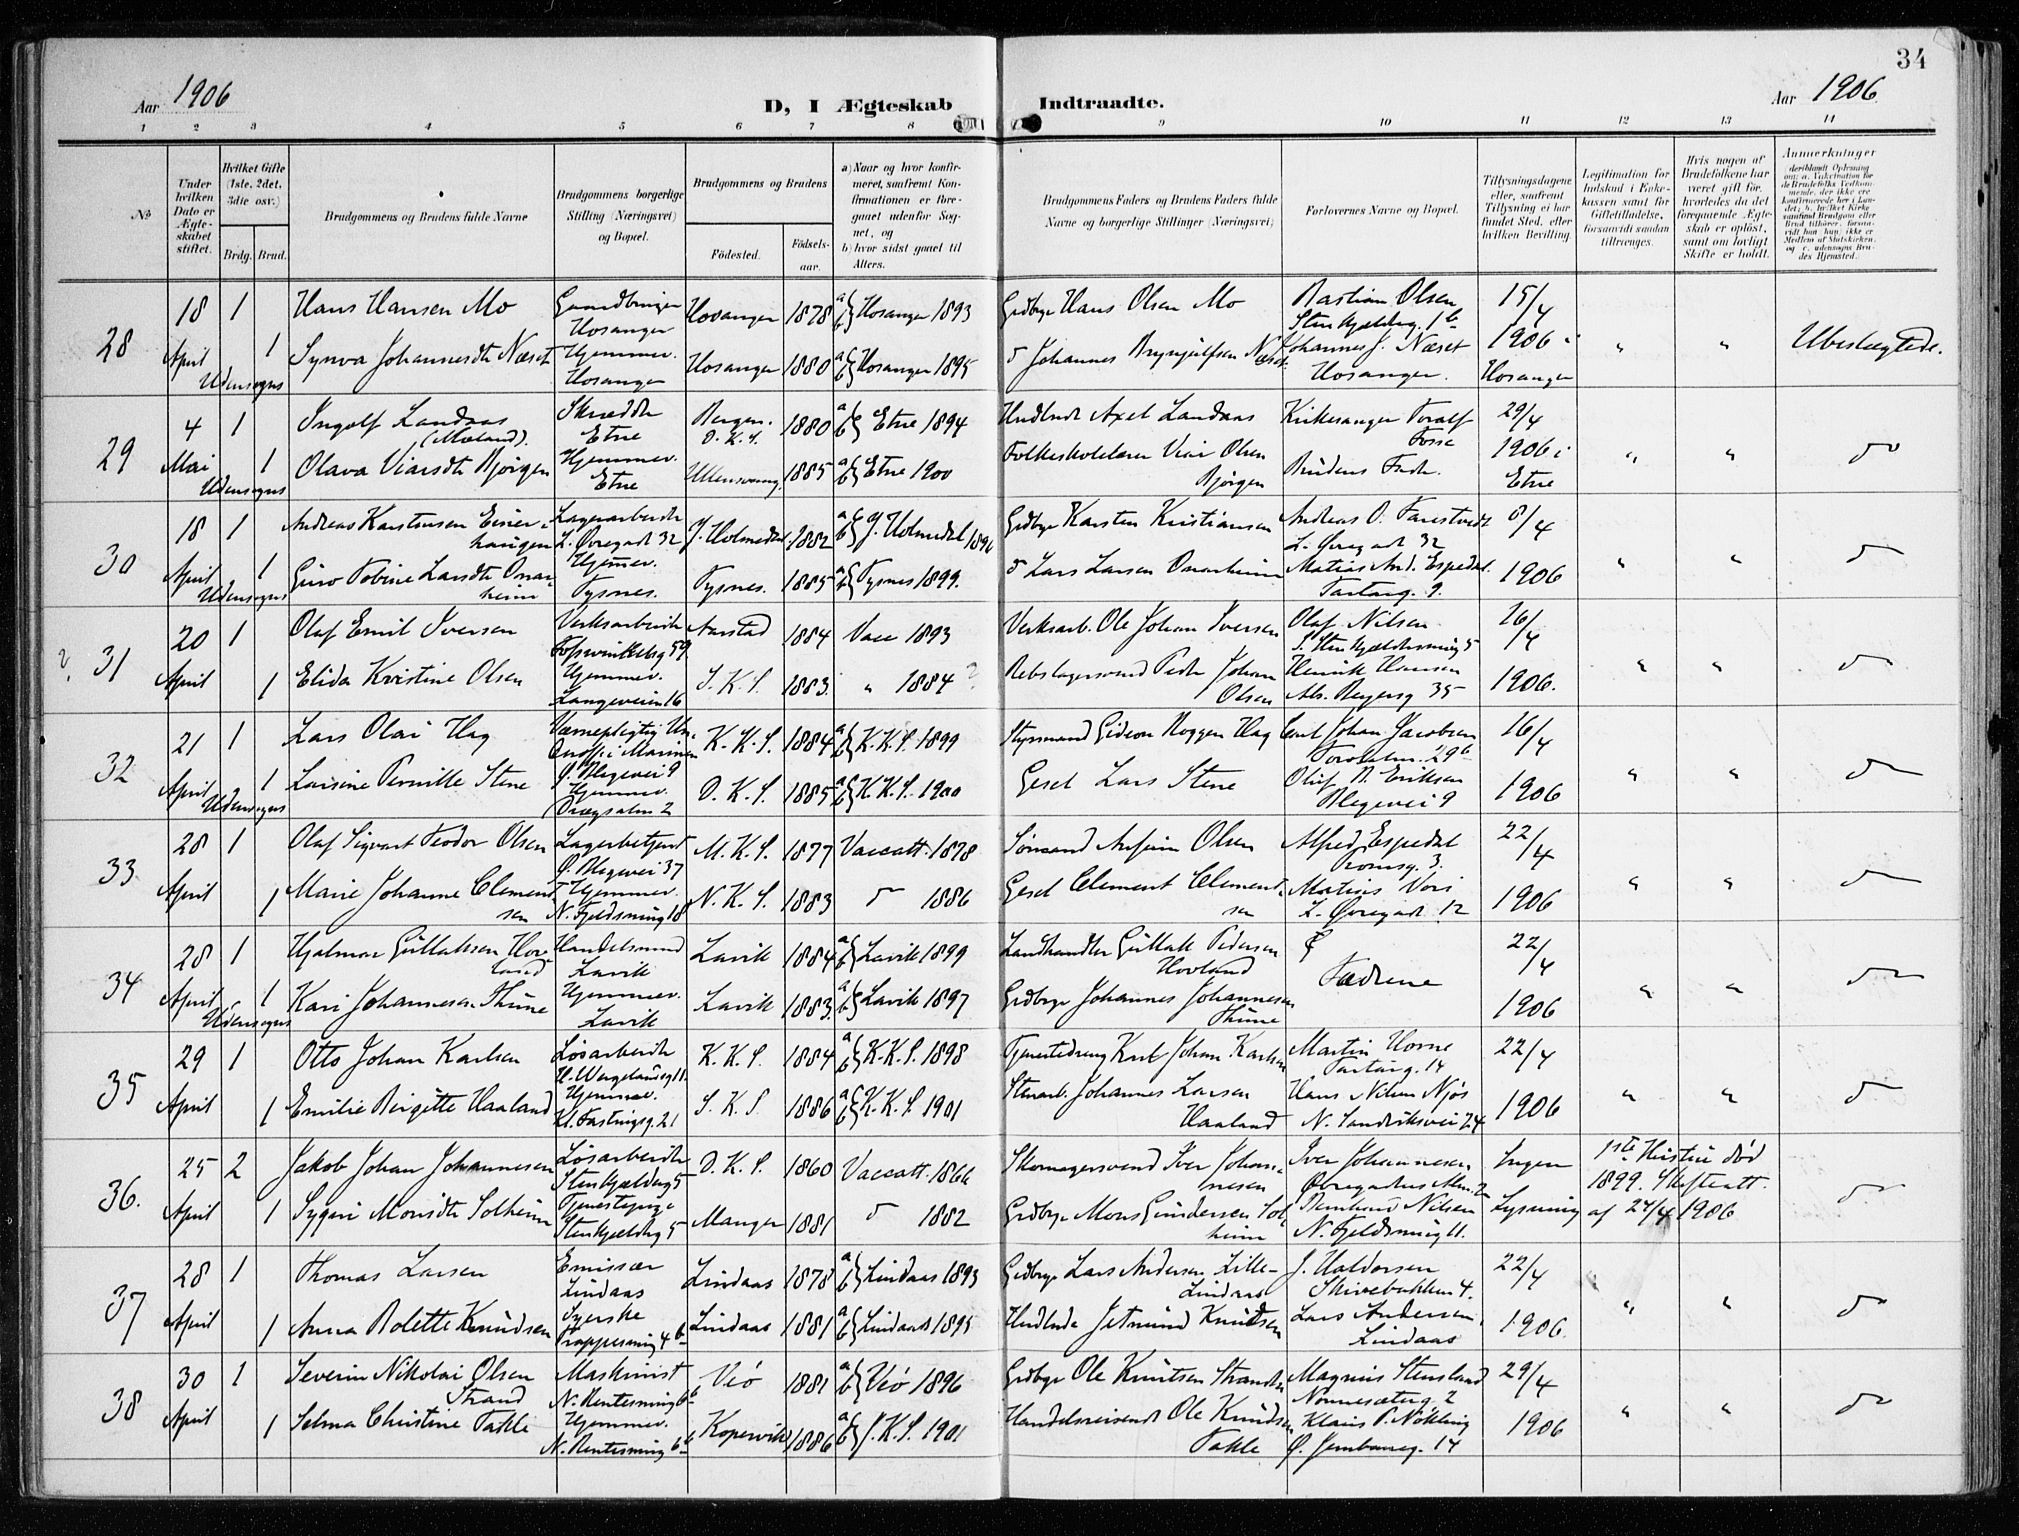 34
Aar 1906
D, I Ægteskab Indtraadte.
Aar 1906
1 2 3 4 5 6 7 8 9 10 11 12 13 14
№
Under hvilken Dato er Ægteskabet stiftet.
Hvilket Gifte (1ste, 2det, 3die osv.)
Brdg. Brud.
Brudgommens og Brudens fulde Navne
Brudgommens borgerlige Stilling (Næringsvei) og Bopæl.
Brudgommens og Brudens
Fødested.
Fødselsaar.
a) Naar og hvor konfirmeret, saafremt Konfirmationen er foregaaet udenfor Sognet, og
b) hvor sidst gaaet til Alters.
Brudgommens Faders og Brudens Faders fulde Navne og borgerlige Stillinger (Næringsvei)
Forlovernes Navne og Bopæl.
Tillysningsdagene eller, saafremt Tillysning ei har fundet Sted, efter hvilken Bevilling.
Legitimation for Indskud i Enkekassen samt for Giftetilladelse, forsaavidt saadan tiltrænges.
Hvis nogen af Brudefolkene har været gift før, hvorledes da det foregaaende Ægteskab er opløst, samt om lovligt Skifte er holdt.
Anmerkninger
28 18 1 Hans Hansen Mo Gaardbruger Hosanger Hosanger 1878 a b Hosanger 1893 Grdbrgr Hans Olsen Mo Bastian Olsen Stenkjælderg. 1 b 15/4
April 1 Synva Johannesdtr Næset Hjemmev. Hosanger Hosanger 1880 a b Hosanger 1895 do Johannes Brynjulfsen Næset Johannes J. Næset Hosanger. 1906 i Hosanger " " Ubeslægtede.
Udensogns
29 4 1 Ingolf Landaas (Mæland). Skrædder Etne Bergen. D.K.S. 1880 a b Etne 1894 Axel Landaas Kirkesanger Toralf Fosse 29/4
Mai 1 Olava Viarsdtr Bjørgen Hjemmev. Etne Ullensvang. 1885 a b Etne 1900 Folkeskolelærer Viar Olsen Bjørgen Brudens Fader. 1906 i Etne " " do
Udensogns
30 18 1 Andreas Karstensen Einerhaugen Lagerarbeider L. Øvregade 32 Y. Holmedal 1882 a b Y. Holmedal 1896 Grdbrgr Karsten Kristiansen Andreas O. Farestvedt L. Øvregade 32 8/4
April 1 Guro Tobine Larsdtr Onarheim Hjemmev. Tysnes. Tysnes. 1885 a b Tysnes 1899. do Lars Larsen Onarheim Matias And. Espedal. Tartarg. 9. 1906 " " do
Udensogns
? 31 20 1 Olaf Emil Iversen Verksarbeider Fosswinkelsg 59 Aarstad 1884 Vacc 1893 Verksarb. Ole Johan Iversen Olaf Nilsen S. Stenkjældersmug 5 16/4
April 1 Elida Kristine Olsen Hjemmev. Langeveien 16 S.K.S. 1883. " 1884 ? Rebslagersvend Peder Johan Olsen Henrik Hansen Ab. Meyersg 35 1906. " " do
32 21 1 Lars Olai Hag Værnepligtig i Marinen Ø. Blegevei 9 K.K.S. 1884 a b K.K.S. 1899 Styrmand Gideon Noggen Hag Emil Johan Jacobsen 29 b 16/4
April 1 Larsine Pernille Stene Hjemmev. Dræggsalm 2 D.K.S. 1885 a b K.K.S. 1900 Gesel Lars Stene Oluf B. Eriksen Blegevei 9 1906 " " do
Udensogns
33 28 1 Olaf Sigvart Teodor Olsen Lagerbetjent Ø. Blegevei 37 M.K.S. 1877 Vaccatt. 1878 Olsen Alfred Espedal 3. 22/4
April 1 Marie Johanne Clementsen Hjemmev. N. Fjeldsmug 18 N.K.S. 1883 do 1886 Gesel Clement Clementsen Matias Vori L. Øvregade 12 1906 " " do
34 28 1 Hjalmar Gullaksen Hovland Handelsmand Lavik Lavik 1884 a b Lavik 1899 Landhandler Gullak Pedersen Hovland 22/4
April 1 Kari Johannesen Thune Hjemmev. Lavik Lavik 1883. a b Lavik 1897 Grdbrgr Johannes Johannesen Thune Fædrene 1906 " " do
Udensogns
35 29 1 Otto Johan Karlsen Løsarbeider H. Wergelandsg 11. K.K.S. 1884 a b K.K.S. 1898 Tjenestedreng Karl Johan Karlsen Martin Horne Tartarg. 14 22/4
April 1 Emilie Birgitte Haaland Hjemmev. Kl. Fastingsg. 21 S.K.S. 1886 a b K.K.S. 1901 Stenarb. Johannes Larsen Haaland Hans Nilsen Njøs N. Sandviksvei 24 1906 " " do
36. 25 2 Jakob Johan Johannesen Løsarbeider Stenkjælderg 5 D.K.S. 1860 Vaccatt. 1866 Skomagersvend Iver Johannesen Iver Johannesen Øvregadens Alm. Ingen 1ste Hustru død
April 1 Sygni Monsdtr Solheim Tjenestepige Stenkjælderg 5 Manger 1881 do 1882 Grdbrgr Mons Gundersen Solheim Bernhard Nilsen N. Fjeldsmug 11. Lysning 1899. Skifteatt. af 24/4 1906 do
37 28 1 Thomas Larsen Emissær Lindaas Lindaas 1878 a b Lindaas 1893 Grdbrgr Lars Andersen Lille-Lindaas J. Haldorsen Skivebakken 4. 22/4
April 1 Anna Bolette Knudsen Syerske Trappesmug 4 b Lindaas 1881 a b Lindaas 1895 Jetmund Knudsen Lars Andersen, Lindaas 1906. " " do
38 30 1 Severin Nikolai Olsen Strand Maskinist N. Hentesmug 6 b Veø 1881 a b Veø 1896 Grdbrgr Ole Knutsen Stranden Magnus Stensland Nonnesæterg. 2 29/4
April 1 Selma Christine Takle Hjemmev. N. Hentesmug 6 b Kopervik 1886 a b J.K.S. 1901 Handelsreisende Ole Knudsen Takle Klaus P. Nøkling Ø. Jernbaneg. 14 1906 " " do